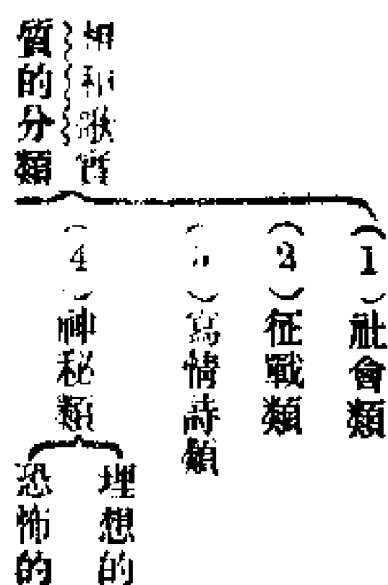 質的分類
(1)社會類
(2)征戰類
寫情詩類
(4)神秘類
理想的
恐怖的